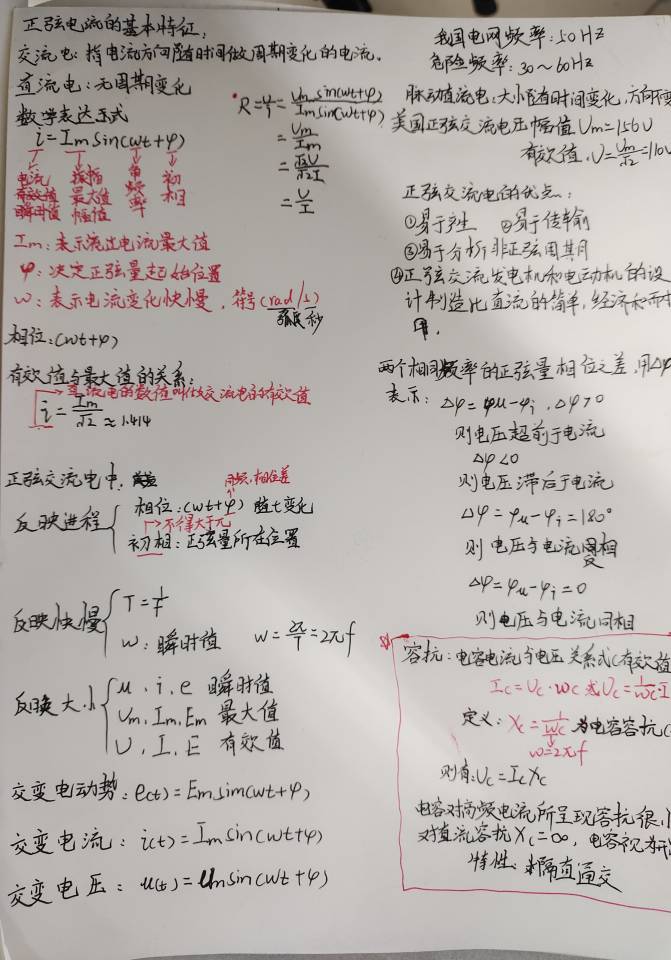 正弦电流的基本特征，
交流电：指电流方向随时间做周期变化的电流。
直流电：无周期变化
数学表达式
i=Im sin(wt+φ)
电流 振幅 角 初
有效值 最大值 频 相
瞬时值 幅值 率
Im：表示流出电流最大值
φ：决定正弦量起始位置
w：表示电流变化快慢，符号(rad/s)
弧度 秒
相位：(wt+φ)
有效值与最大值的关系：
直流电的数值叫做交流电的有效值
i=Im/√2≈1.414
正弦交流电中，
同频，相位差
反映进程
相位：(wt+φ) 随t变化
不得大于π
初相：正弦量所在位置
反映快慢
T=1/f
w：瞬时值 w=2π/T=2πf
反映大小
u，i，e 瞬时值
Um，Im，Em 最大值
U，I，E 有效值
交变电动势：e(t)=Em sin(wt+φ)
交变电流：i(t)=Im sin(wt+φ)
交变电压：u(t)=Um sin(wt+φ)
R=Ψ=Um sin(wt+φ)/Im sin(wt+φ)
=Um/Im
=√2U/√2I
=U/I
我国电网频率：50HZ
危险频率：30～60HZ
脉动直流电：大小随时间变化，方向不变
美国正弦交流电压幅值Um=156V
有效值，U=Um/√2=110V
正弦交流电的优点：
①易于产生 ②易于传输
③易于分析非正弦周期
④正弦交流发电机和电动机的设
计制造比直流的简单，经济和耐
用．
两个相同频率的正弦量相位之差，用Δφ
表示：Δφ=φu-φi，Δφ>0
则电压超前于电流
Δφ<0
则电压滞后于电流
Δφ=φu-φi=180°
则电压与电流反相
Δφ=φu-φi=0
则电压与电流同相
容抗：电容电流与电压关系式(有效值
Ic=Uc·wc 或Uc=1/wc·I
定义：Xc=1/wc 为电容容抗(
w=2πf
则有：Uc=IcXc
电容对高频电流所呈现容抗很小
对直流容抗Xc=∞，电容视为开
特性：隔直通交